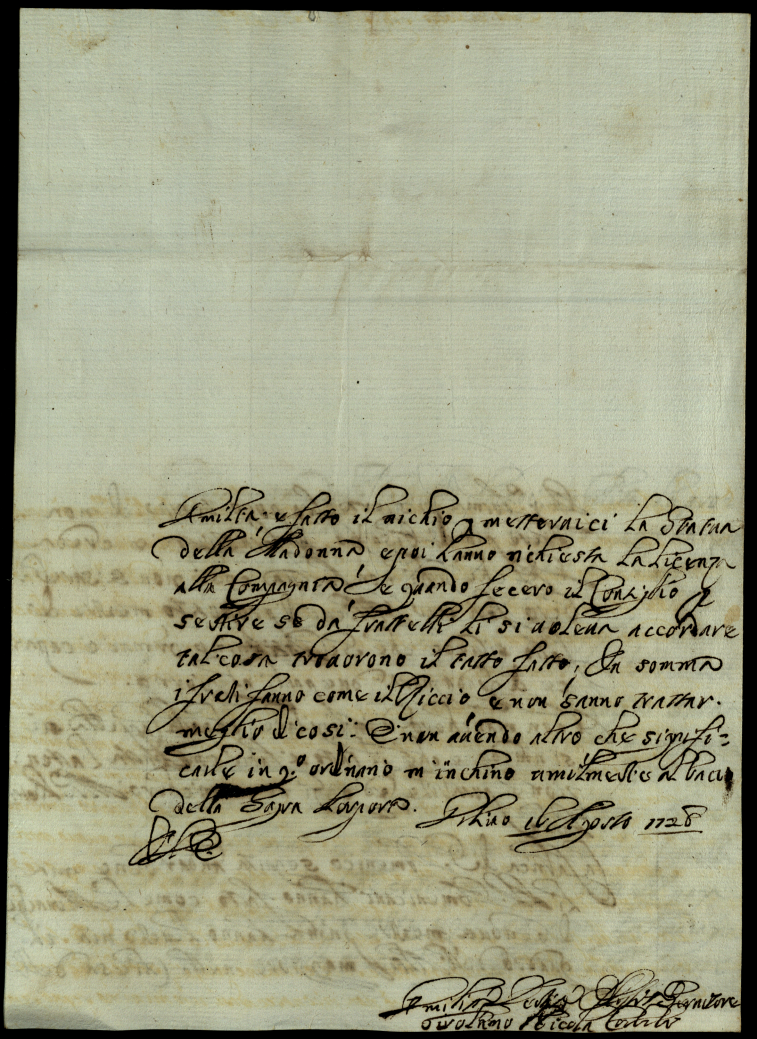 Umiltà, e fatto il nichio p metterci la Statua
della Madonna e poi hanno richiesta la licenza
alla Compagnia, e quando fecero il Consiglio p
sentire se da fratelli li si voleva accordare
tal cosa trovorono il fatto fatto, In somma
i frati fanno come il Riccio e non sanno trattar
meglio di così: E non avendo altro che signifi=
carle in q.o ordinario m'inchino umilmente al bacio
della Sagra Porpora. 16 Agosto 1728
Servitore
Girolamo Nicola